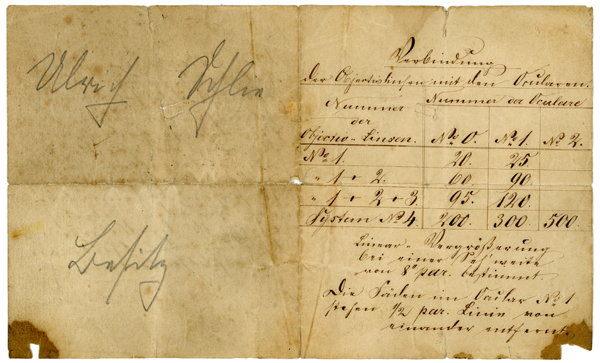 Ulrich Schlie
Besitz
Verbindung
der Objectivlinsen mit den Ocularen.
Nummer der Objectiv-Linsen. Nummer der Oculare
No 0. No 1. No 2.
No 1. 20. 25.
" 1 + 2. 60. 90.
" 1 + 2 + 3. 95. 120.
System No 4. 200. 300. 500.
Linear-Vergrößerung
bei einer Sehweite
von 8" par. bestimmt.
Die Fäden im Ocular No 1
stehen 1/2 par. Linie von
einander entfernt.